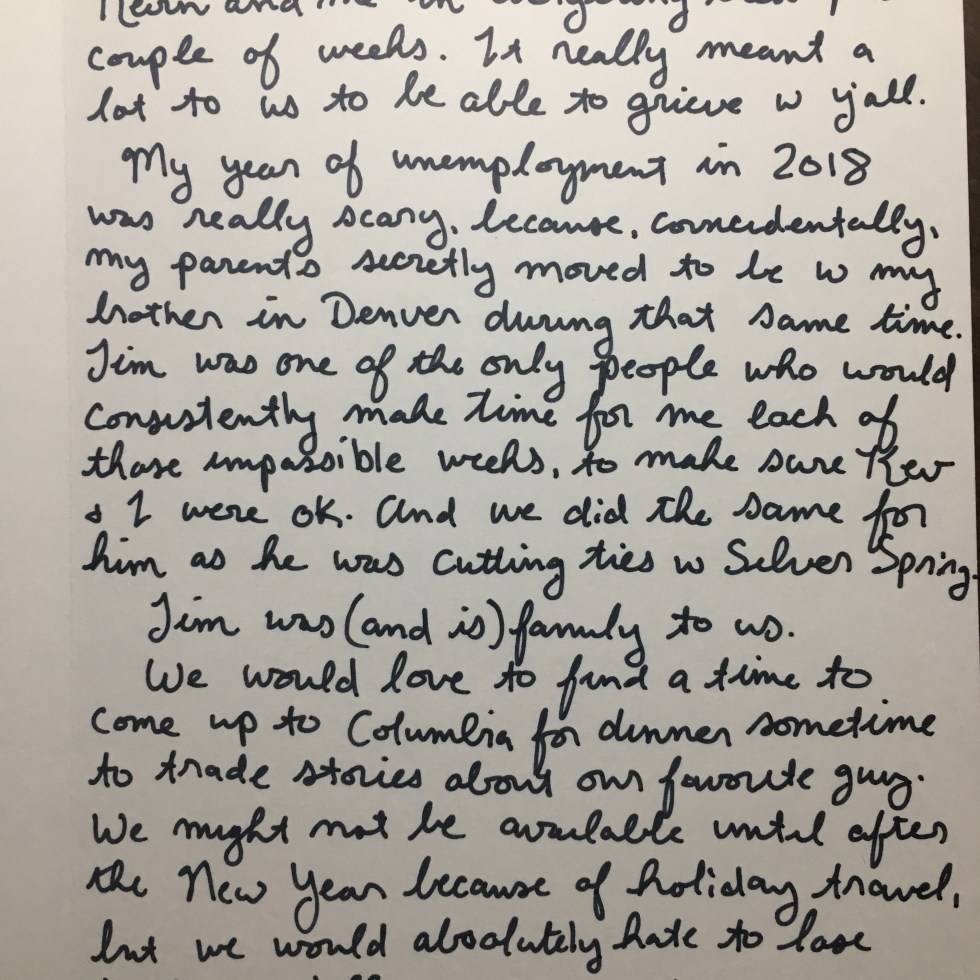 Kevin and me in
couple of weeks. It really meant a
lot to us to be able to grieve w y'all.
My year of unemployment in 2018
was really scary, because, coincidentally,
my parents secretly moved to be w my
brother in Denver during that same time.
Jim was one of the only people who would
consistently make time for me each of
those impossible weeks, to make sure Kev
& I were ok. And we did the same for
him as he was cutting ties w Silver Spring.
Jim was (and is) family to us.
We would love to find a time to
come up to Columbia for dinner sometime
to trade stories about our favorite guy.
We might not be available until after
the New Year because of holiday travel,
but we would absolutely hate to lose